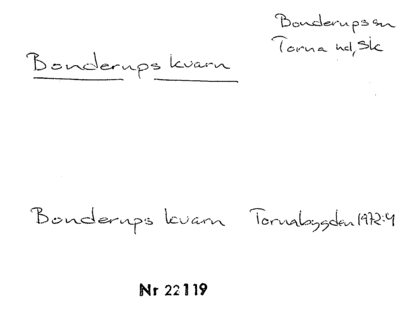 Bonderups sn
Torna hd, Sk
Bonderups kvarn
Bonderups kvarn Tornabygden 1972:4
Nr 22119